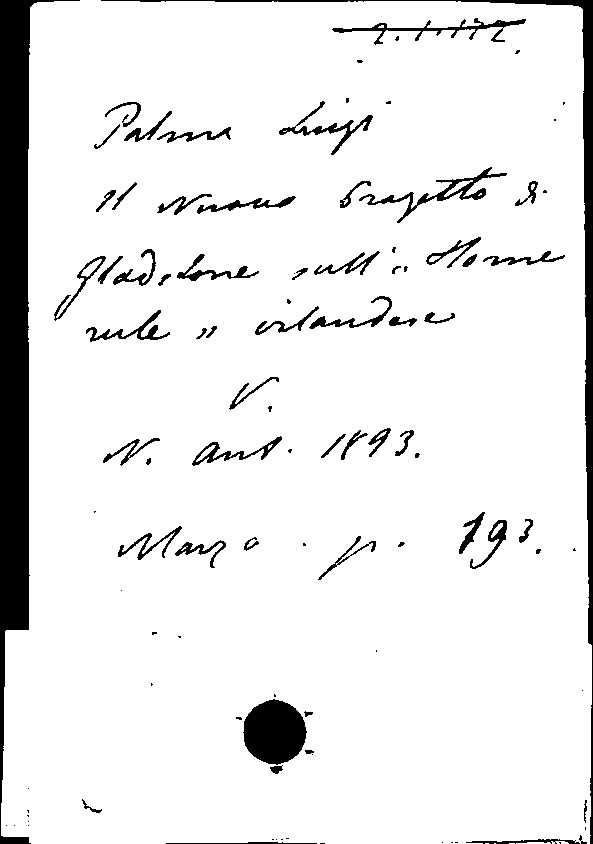 2.1.172
Palma Luigi
Il Nuovo Progetto di
Gladstone sull' „ Home
rule „ irlandese
V.
N. Ant. 1893.
Marzo. p. 193.